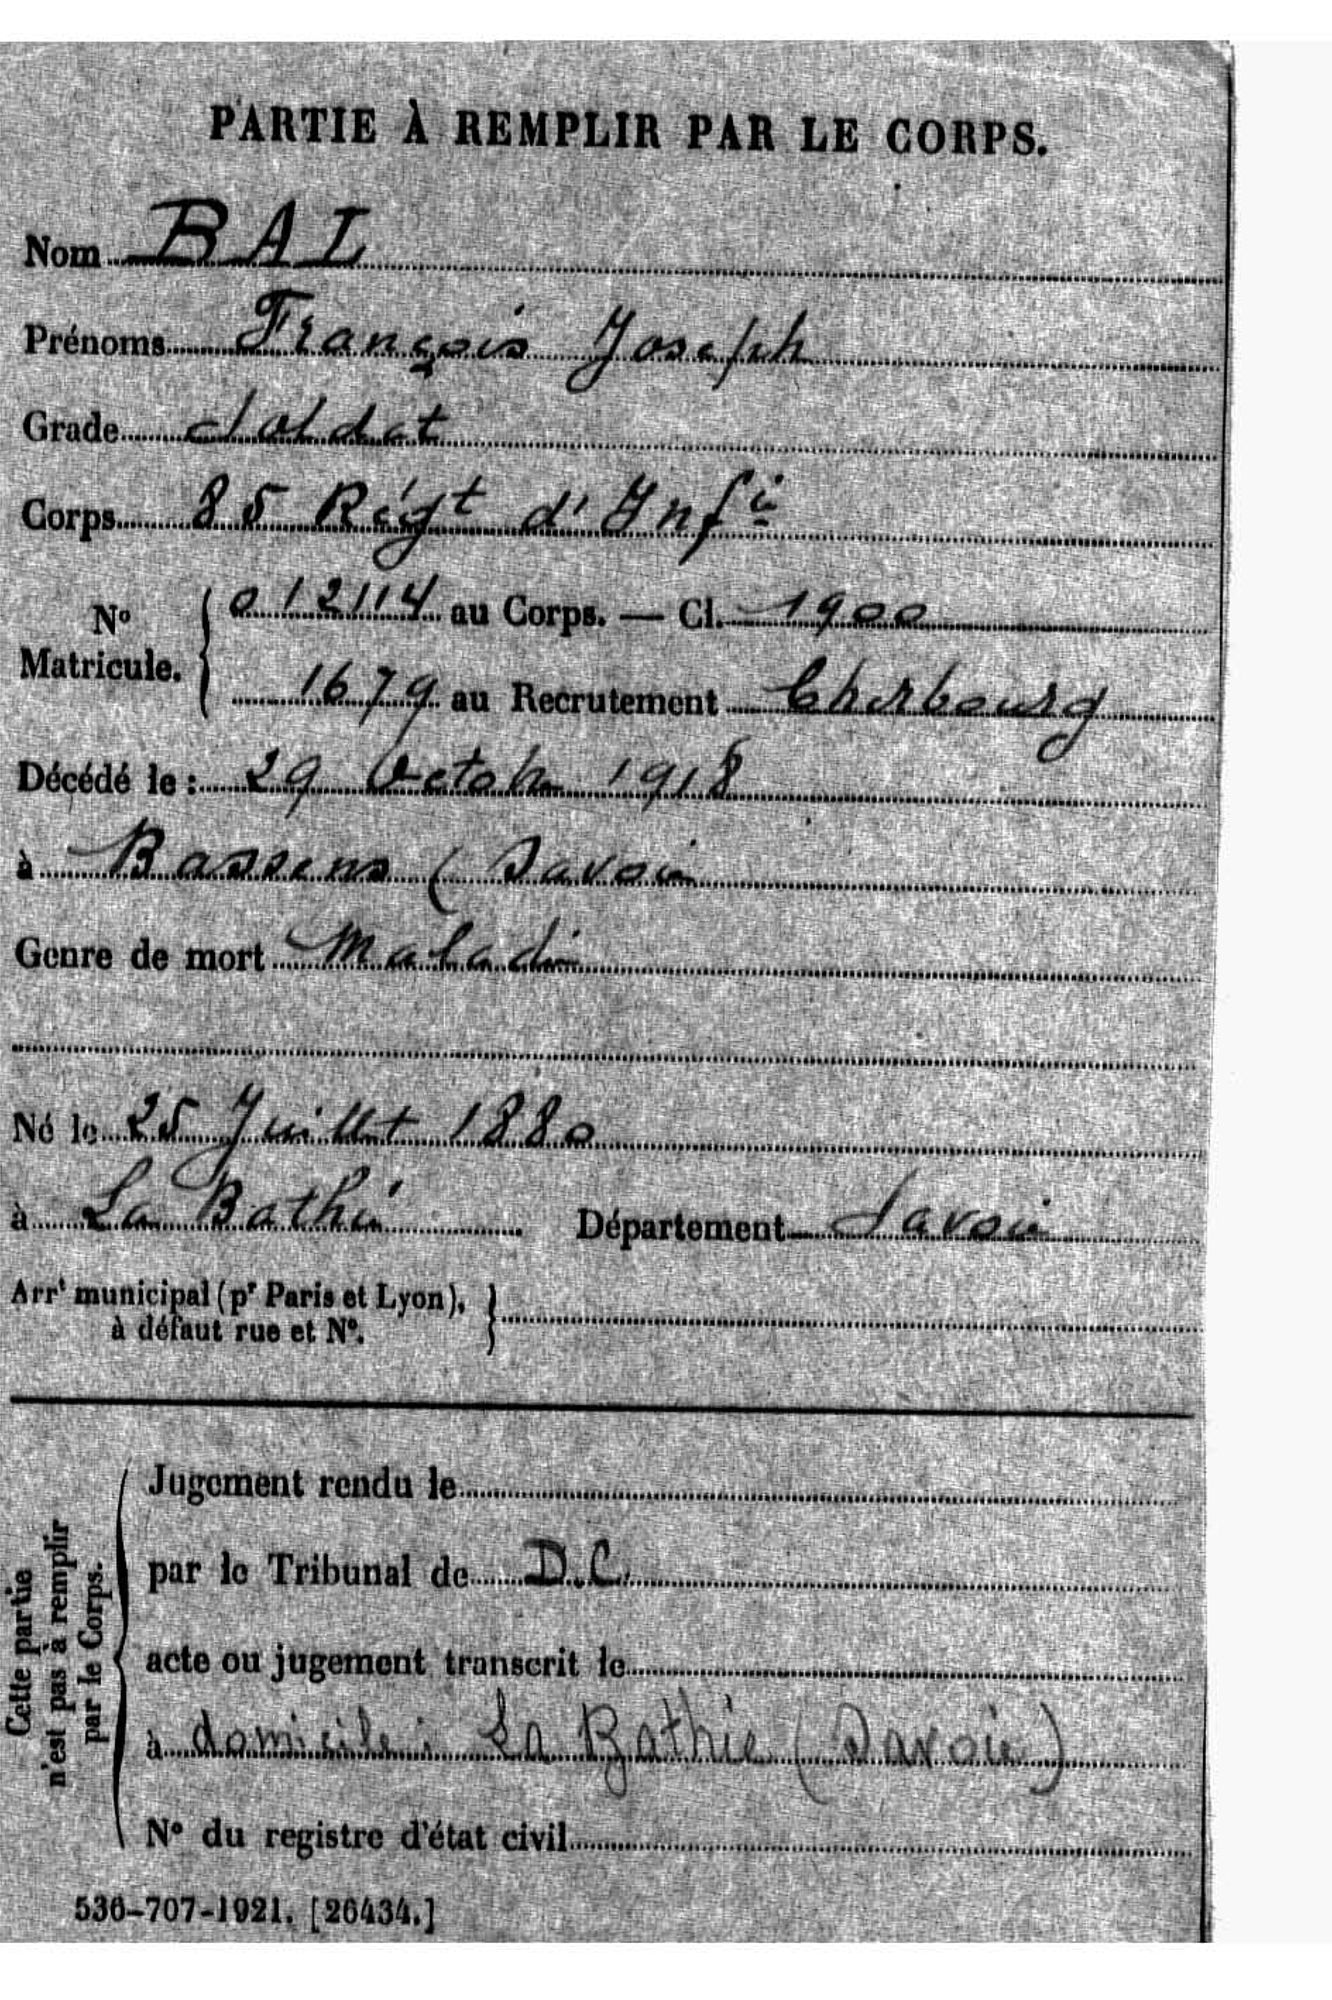 PARTIE À REMPLIR PAR LE CORPS.
Nom BAL
Prénoms François Joseph
Grade Soldat
Corps 85 Régt d'Infie
No 012114 au Corps. — Cl. 1900
Matricule. 1679 au Recrutement Cherbourg
Décédé le : 29 Octobre 1918
à Bassens (Savoie
Genre de mort Maladie
Né le 25 Juillet 1880
à La Bathie Département Savoie
Arrt municipal (pr Paris et Lyon),
à défaut rue et No.
Cette partie
n'est pas à remplir
par le Corps.
Jugement rendu le
par le Tribunal de D.C.
acte ou jugement transcrit le
à domicile : La Bathie (Savoie)
No du registre d'état civil
536-707-1921. [26434.]